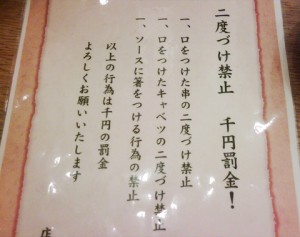 二度づけ禁止　千円罰金!
一、口をつけた串の二度づけ禁止
一、口をつけたキャベツの二度づけ禁止
一、ソースに箸をつける行為の禁止
以上の行為は千円の罰金
よろしくお願いいたします
店